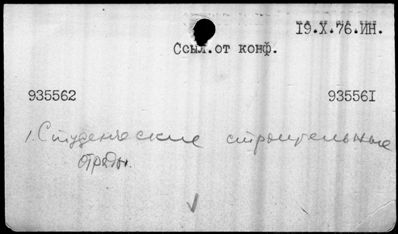 19.X.76.ИН.
Ссыл.от конф.
935562 935561
1. Студенческие строительные
отряды.